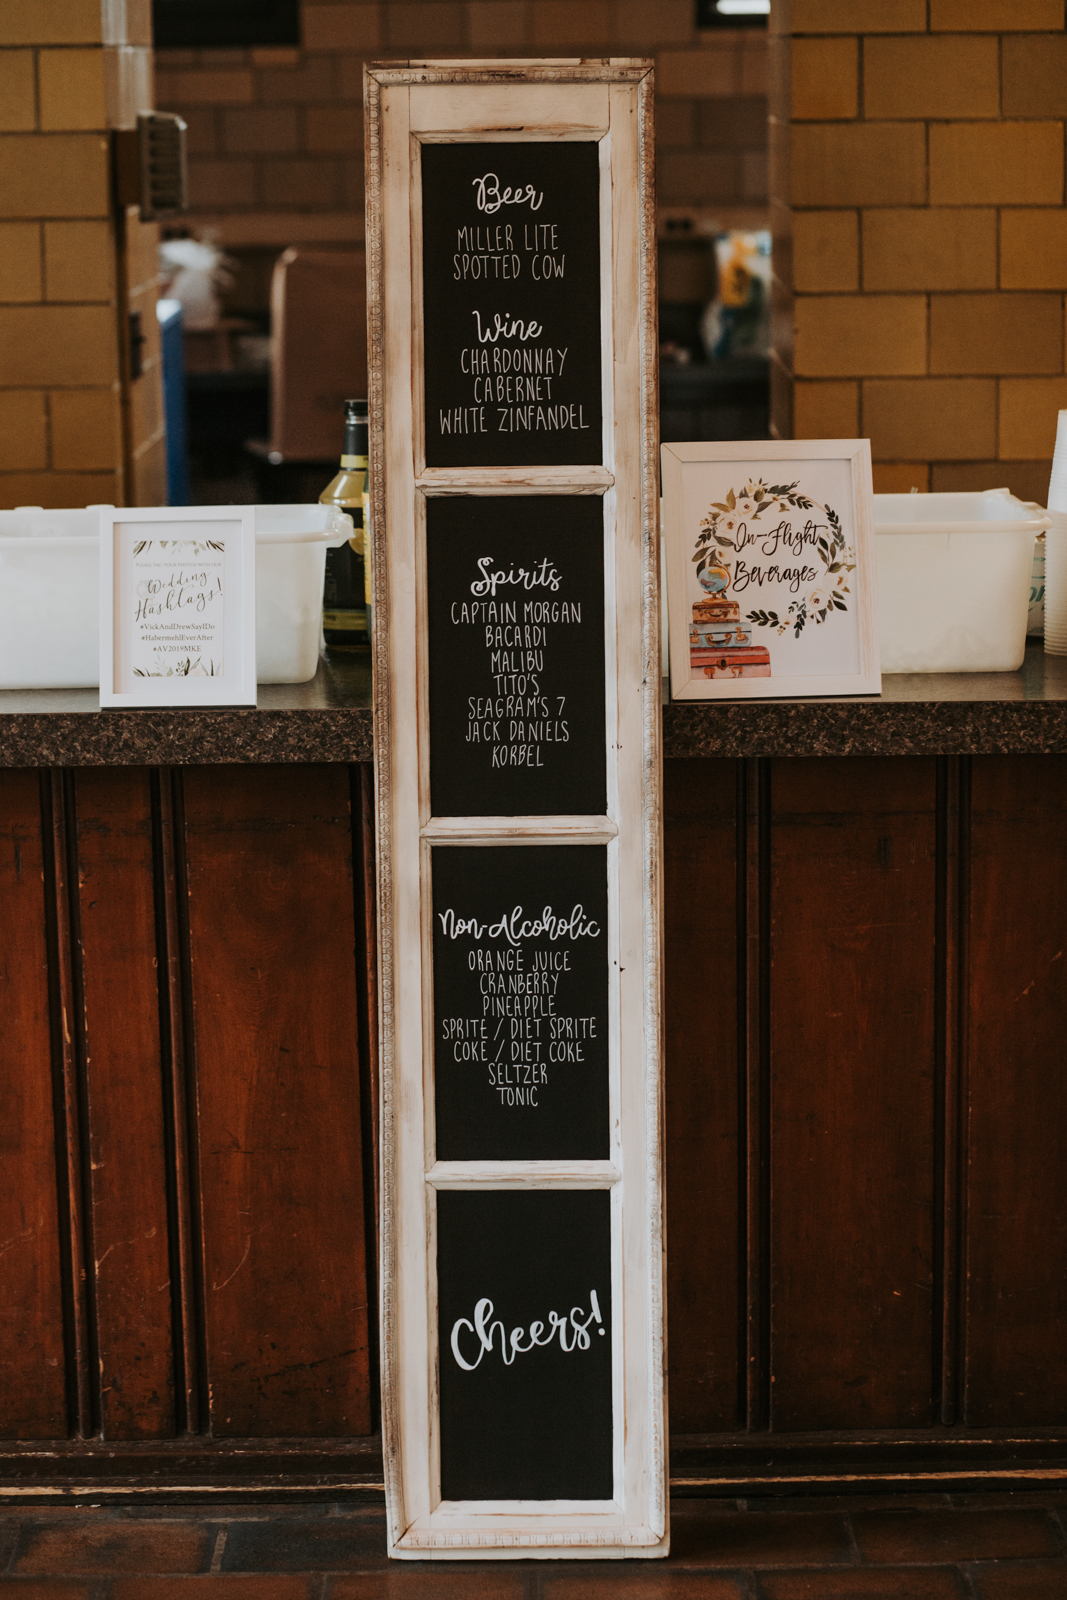 Beer
MILLER LITE
SPOTTED COW
Wine
CHARDONNAY
CABERNET
WHITE ZINFANDEL
Spirits
CAPTAIN MORGAN
BACARDI
MALIBU
TITO'S
SEAGRAM'S 7
JACK DANIELS
KORBEL
Non-Alcoholic
ORANGE JUICE
CRANBERRY
PINEAPPLE
SPRITE / DIET SPRITE
COKE / DIET COKE
SELTZER
TONIC
Cheers!
Wedding
Hashtags!
#VickAndDrewSayIDo
#HabermehlEverAfter
#AV2019MKE
In-Flight
Beverages